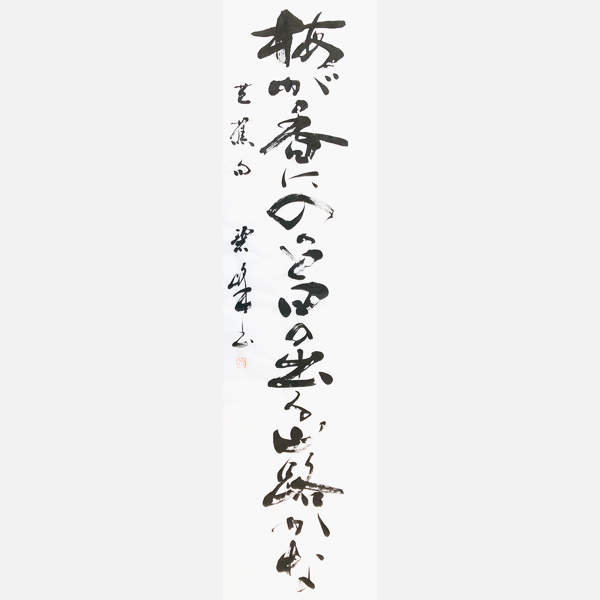 梅が香にのつと日の出る山路かな
芭蕉句 碧峰書